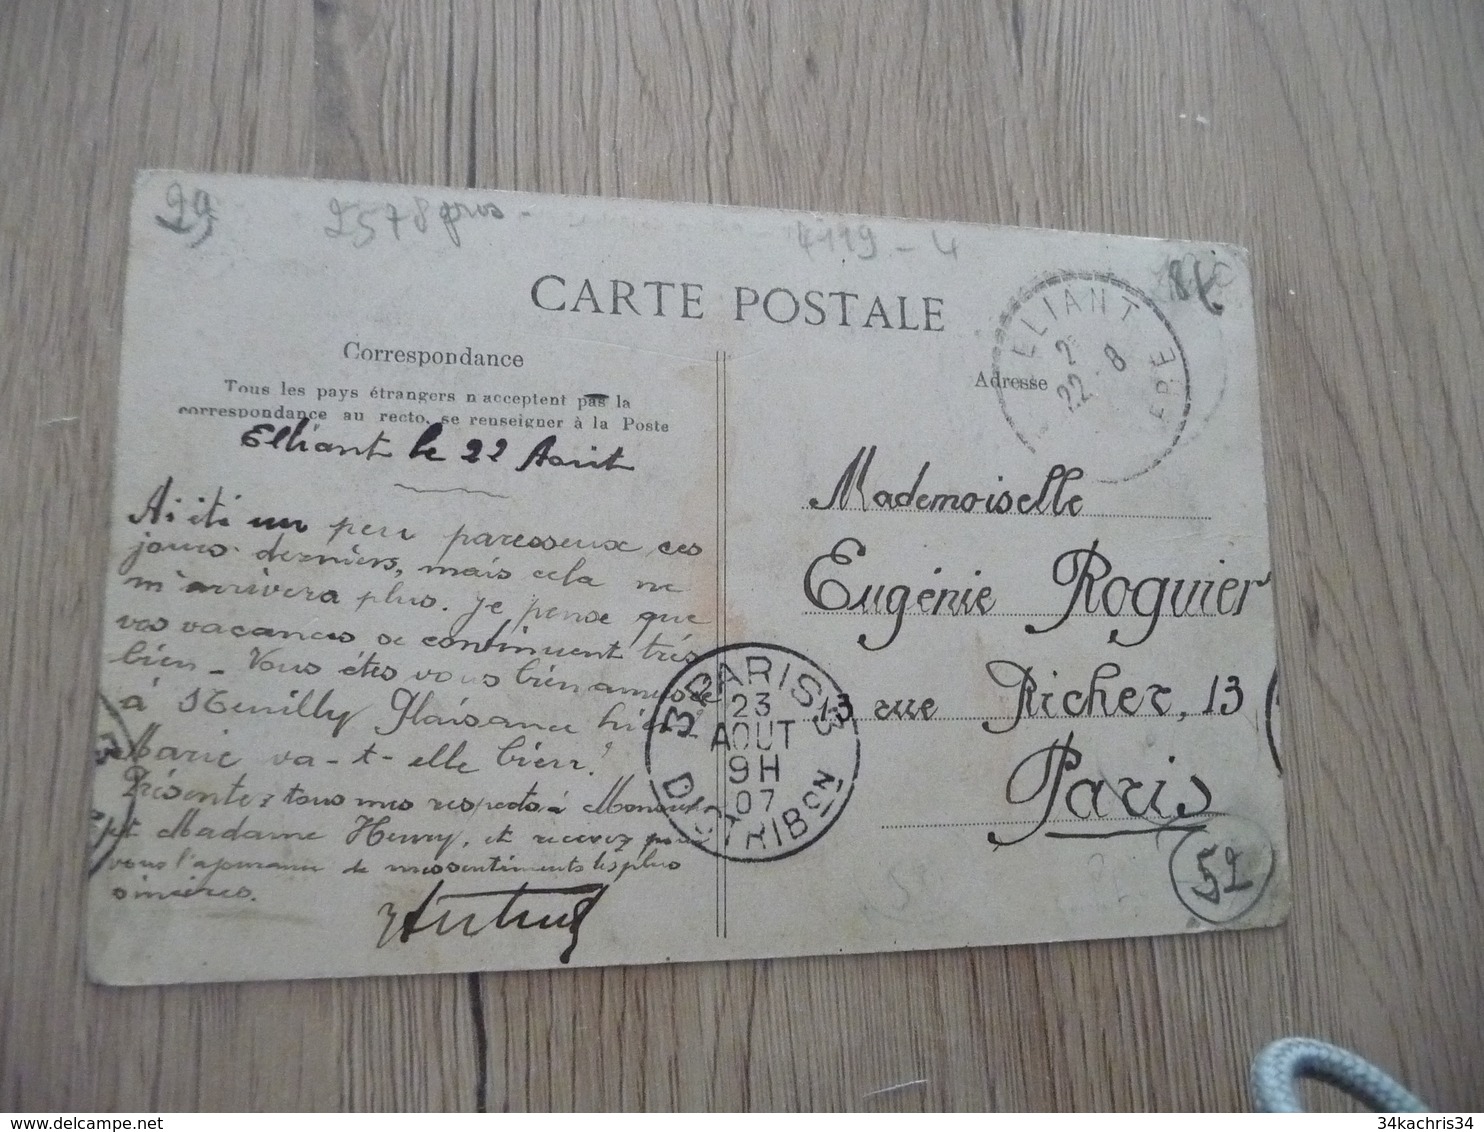 29
2578 gros -
4119 - 4
CARTE POSTALE
Correspondance
Tous les pays étrangers n acceptent pas la
correspondance au recto, se renseigner à la Poste
Adresse
ELLIANT
22 8
Elliant le 22 Août
Ai été un peu paresseux ces
jours derniers, mais cela ne
m'arrivera plus. Je pense que
vos vacances se continuent très
bien - Vous êtes vous bien amusée
à Neuilly Plaisance hier.
Marie va-t-elle bien?
Présentez tous mes respects à Monsieur
et Madame Henry, et recevez pour
vous l'assurance de mes sentiments les plus
sincères.
Mademoiselle
Eugénie Roguier
13 rue Richer, 13
Paris
3 PARIS 3
23
AOUT
9H
07
DISTRIBON
52
34kachris34